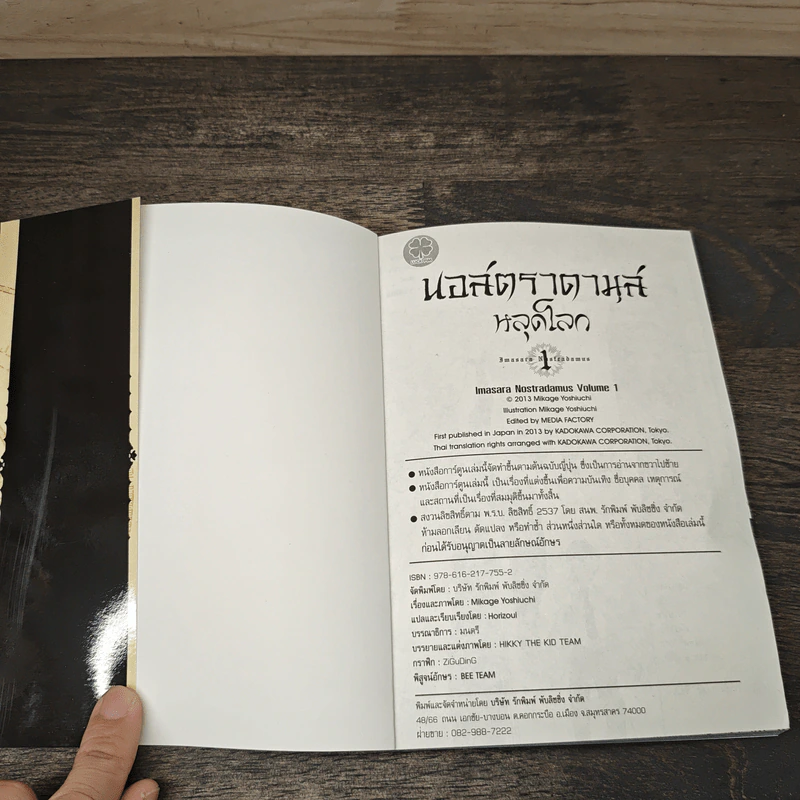 นอสตราดามุส
หลุดโลก
Imasara Nostradamus
1
Imasara Nostradamus Volume 1
© 2013 Mikage Yoshiuchi
Illustration Mikage Yoshiuchi
Edited by MEDIA FACTORY
First published in Japan in 2013 by KADOKAWA CORPORATION, Tokyo.
Thai translation rights arranged with KADOKAWA CORPORATION, Tokyo.
● หนังสือการ์ตูนเล่มนี้จัดทำขึ้นตามต้นฉบับญี่ปุ่น ซึ่งเป็นการอ่านจากขวาไปซ้าย
● หนังสือการ์ตูนเล่มนี้ เป็นเรื่องที่แต่งขึ้นเพื่อความบันเทิง ชื่อบุคคล เหตุการณ์
และสถานที่เป็นเรื่องที่สมมุติขึ้นมาทั้งสิ้น
● สงวนลิขสิทธิ์ตาม พ.ร.บ. ลิขสิทธิ์ 2537 โดย สนพ. รักพิมพ์ พับลิชชิ่ง จำกัด
ห้ามลอกเลียน ดัดแปลง หรือทำซ้ำ ส่วนหนึ่งส่วนใด หรือทั้งหมดของหนังสือเล่มนี้
ก่อนได้รับอนุญาตเป็นลายลักษณ์อักษร
ISBN : 978-616-217-755-2
จัดพิมพ์โดย : บริษัท รักพิมพ์ พับลิชชิ่ง จำกัด
เรื่องและภาพโดย : Mikage Yoshiuchi
แปลและเรียบเรียงโดย : Horizoul
บรรณาธิการ : มนตรี
บรรยายและแต่งภาพโดย : HIKKY THE KID TEAM
กราฟิก : ZiGuDinG
พิสูจน์อักษร : BEE TEAM
พิมพ์และจัดจำหน่ายโดย บริษัท รักพิมพ์ พับลิชชิ่ง จำกัด
48/66 ถนน เอกชัย-บางบอน ต.คอกกระบือ อ.เมือง จ.สมุทรสาคร 74000
ฝ่ายขาย : 082-988-7222